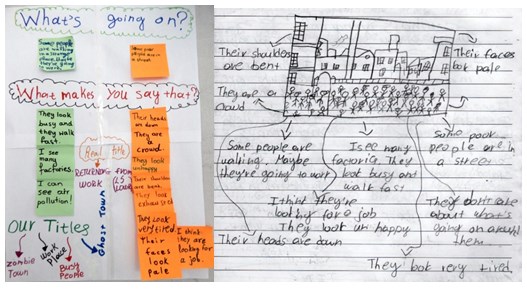 What's going on?
Some people
are walking
in a strange
place. Maybe
they're going
to work.
Some poor
people are in
a street
What makes you say that?
They look
busy and
they walk
fast.
I see
many
factories.
I can
see air
pollution!
Real Title
RETURNING FROM
WORK
Their heads
are down
They are a
crowd.
They look
unhappy
are bent
They look
exhausted
They look
very tired.
Their
faces
look
pale
I think
they are
looking for
a job.
Our Titles
zombie
Town
Work
place
Busy
People
Ghost Town
Their shoulders
are bent
They are a
crowd
Their faces
look pale
Some people are
walking. Maybe
they're going to work
I see many
factories. They
look busy and
walk fast
Some poor
people are in
a street
I think they're
looking for a job
They look un happy
They don't care
about what's
going on around
them
Their heads are down
They look very tired.